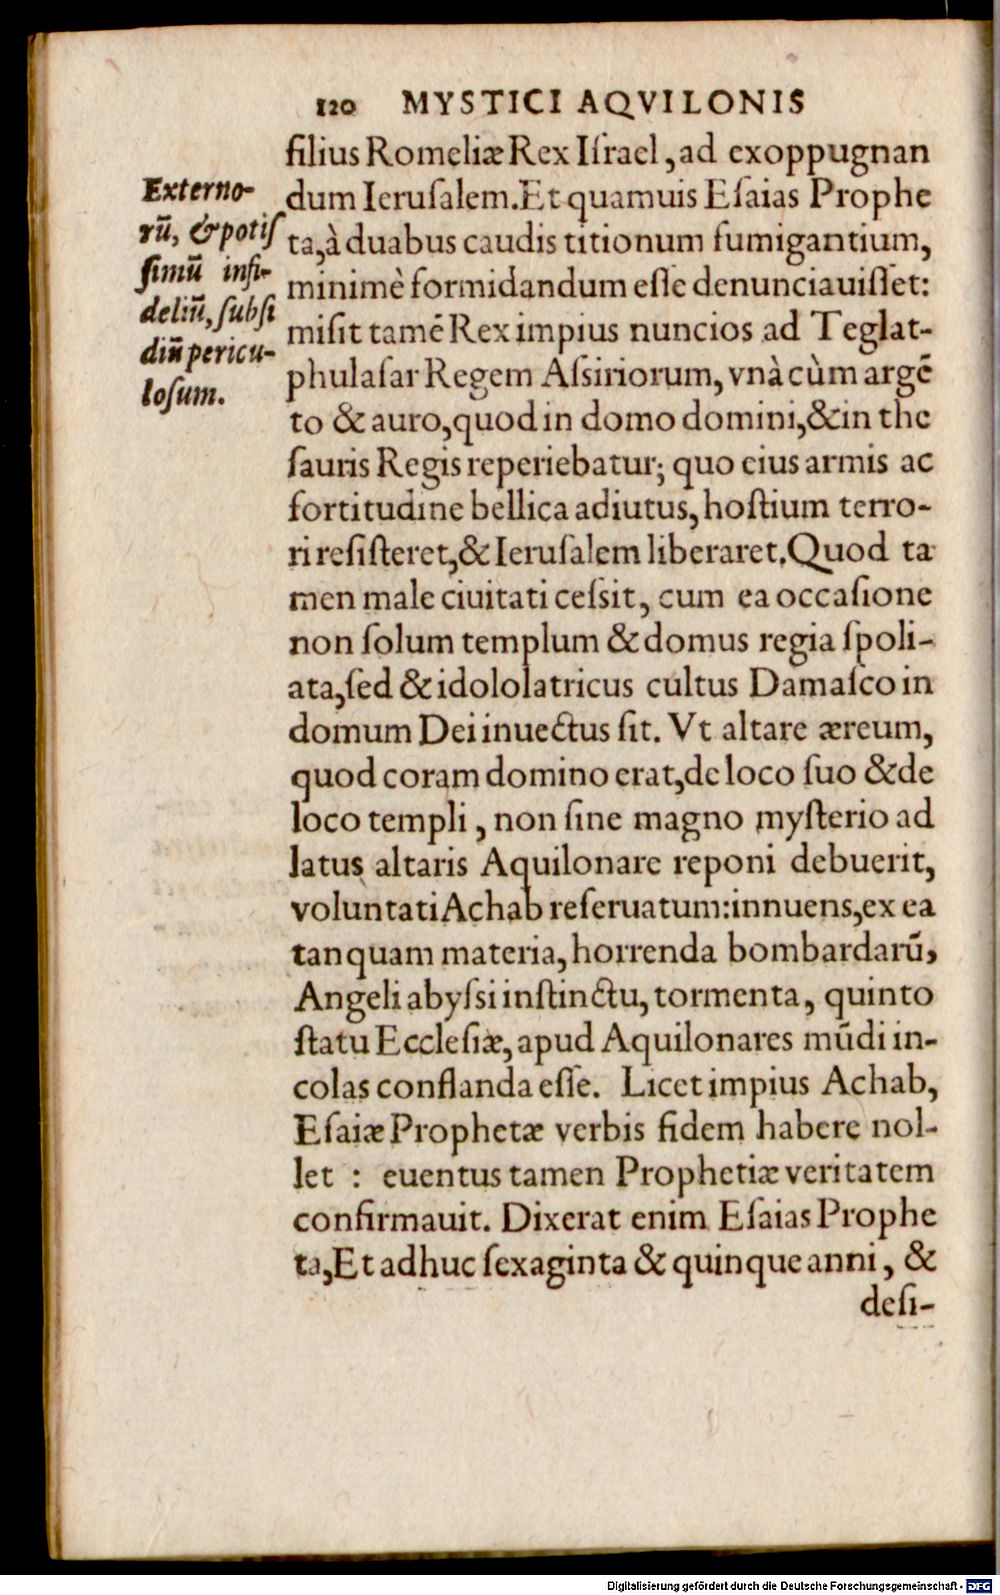 120 MYSTICI AQVILONIS
filius Romeliæ Rex Iſrael, ad exoppugnan
dum Ieruſalem. Et quamuis Eſaias Prophe
ta, à duabus caudis titionum fumigantium,
minimè formidandum eſſe denunciauiſſet:
miſit tamē Rex impius nuncios ad Teglat-
phulaſar Regem Aſsiriorum, vnà cùm argē
to & auro, quod in domo domini, & in the
ſauris Regis reperiebatur; quo eius armis ac
fortitudine bellica adiutus, hoſtium terro-
ri reſiſteret, & Ieruſalem liberaret. Quod ta
men male ciuitati ceſsit, cum ea occaſione
non ſolum templum & domus regia ſpoli-
ata, ſed & idololatricus cultus Damaſco in
domum Dei inuectus ſit. Vt altare æreum,
quod coram domino erat, de loco ſuo & de
loco templi, non ſine magno myſterio ad
latus altaris Aquilonare reponi debuerit,
voluntati Achab reſeruatum: innuens, ex ea
tanquam materia, horrenda bombardarū,
Angeli abyſsi inſtinctu, tormenta, quinto
ſtatu Eccleſiæ, apud Aquilonares mūdi in-
colas conflanda eſſe. Licet impius Achab,
Eſaiæ Prophetæ verbis fidem habere nol-
let : euentus tamen Prophetiæ veritatem
confirmauit. Dixerat enim Eſaias Prophe
ta, Et adhuc ſexaginta & quinque anni, &
deſi-
Externo-
rū, & potiſ
ſimū infi-
deliū, ſubſi
diū pericu-
loſum.
Digitalisierung gefördert durch die Deutsche Forschungsgemeinschaft - DFG